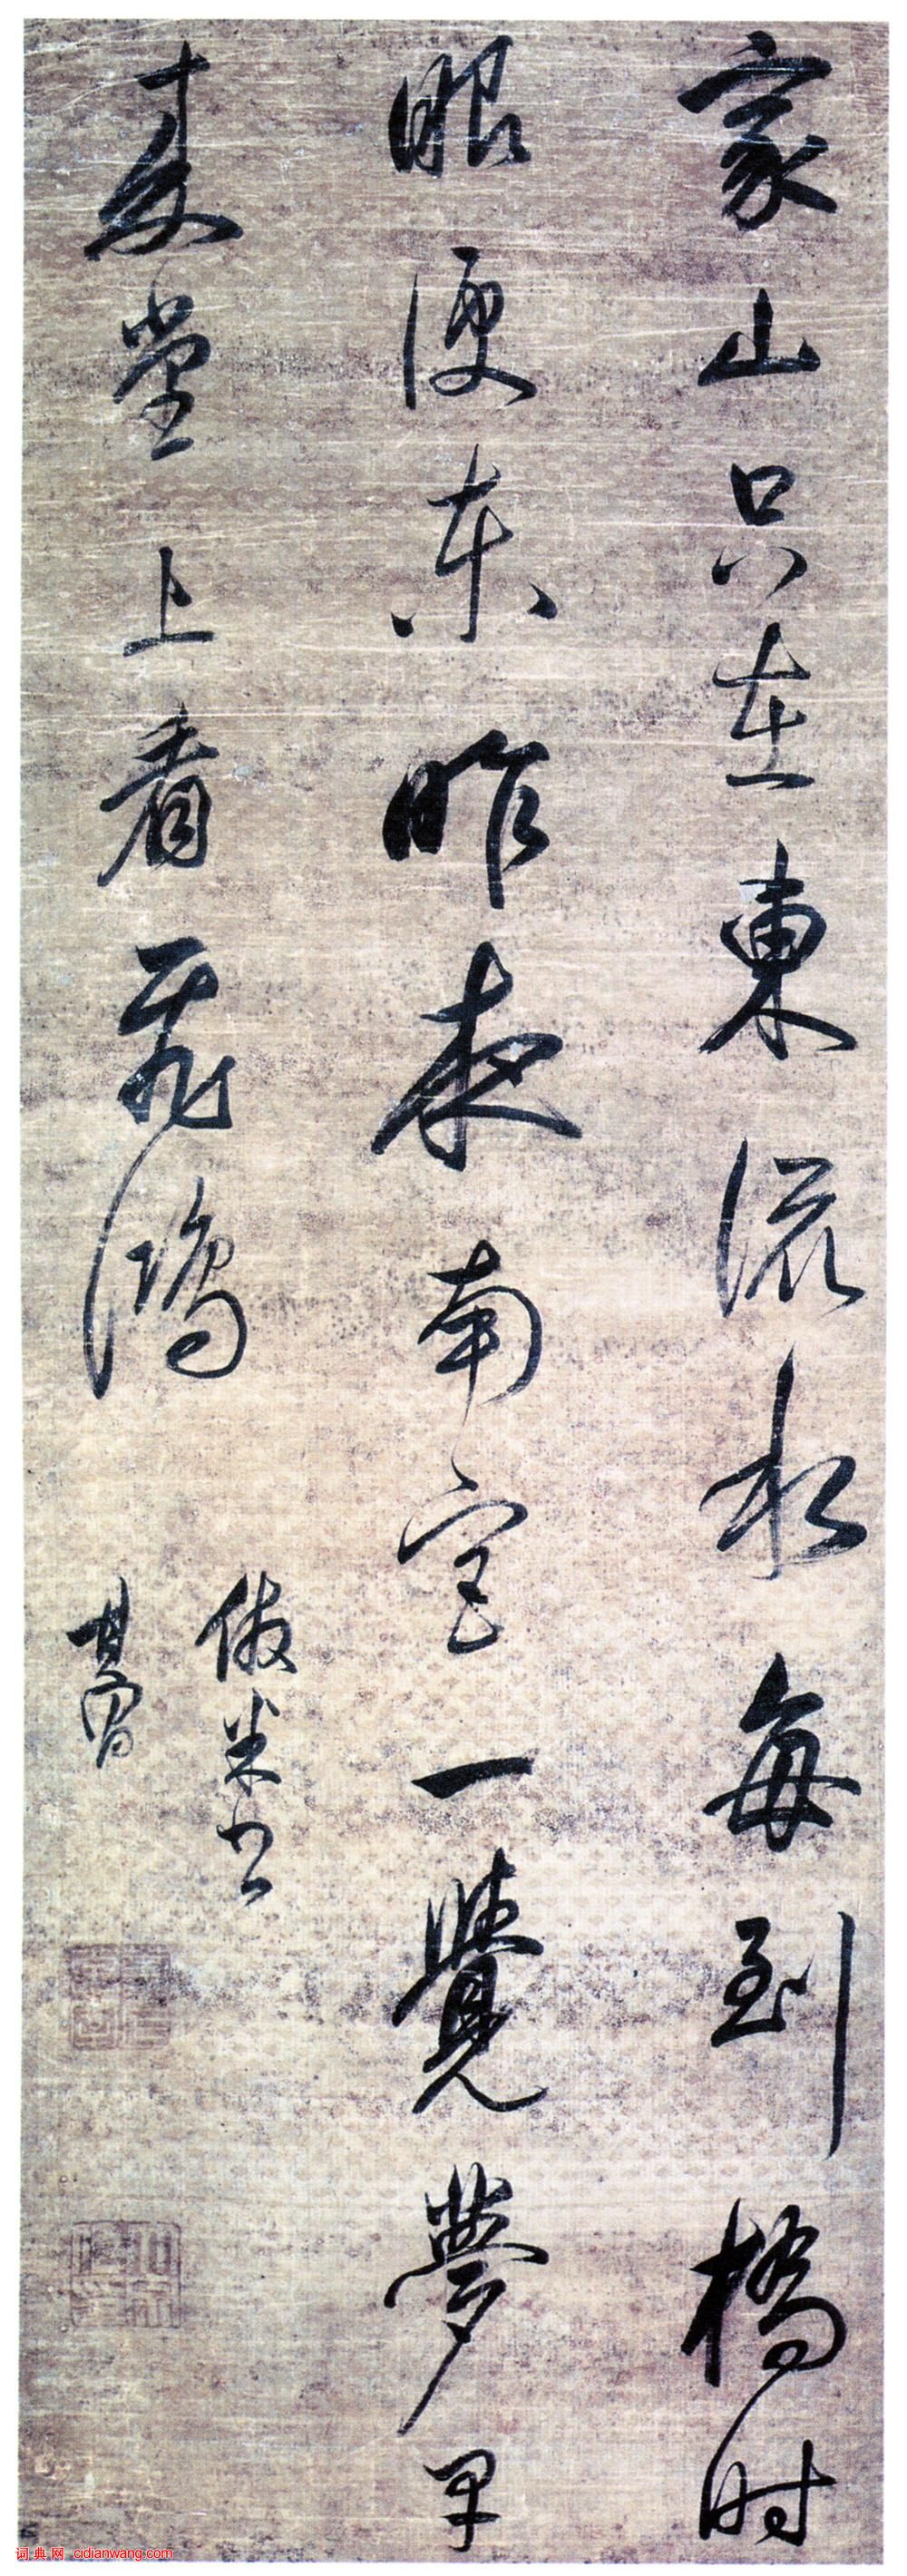 家山只在東流水每到橋時
眼便東昨夜南一覺夢
堂上看飛鴻
倣米書
其昌
词典网 cidianwang.com